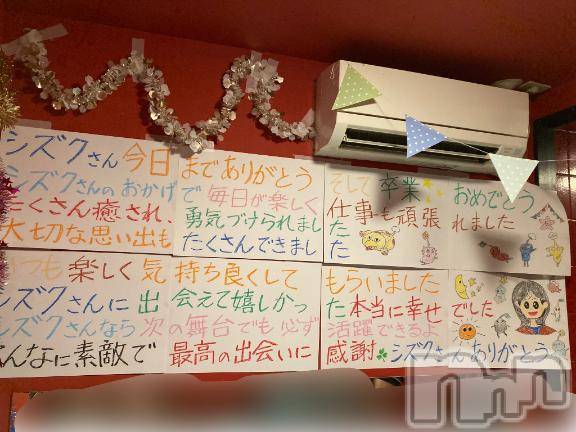 シズクさん今日までありがとう
シズクさんのおかげで毎日が楽しく
たくさん癒され、勇気づけられまし
大切な思い出もたくさんできまし
そして卒業おめでとう
仕事も頑張れました
た
た
いつも楽しく気持ち良くして
シズクさんに出会えて嬉しかっ
シズクさんなら次の舞台でも必ず
こんなに素敵で最高の出会いに
もらいました
た本当に幸せでした
活躍できるよ
感謝☘シズクさんありがとう